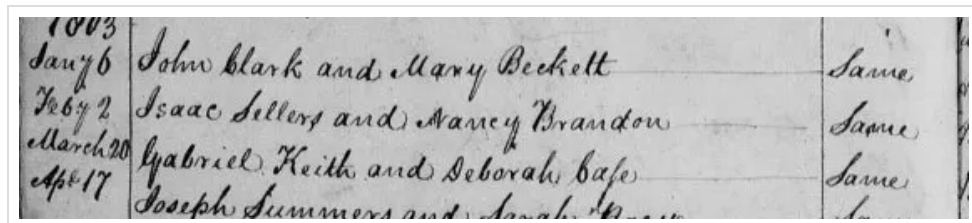 1803
Jany 6 John Clark and Mary Beckett Same
Feby 2 Isaac Sellers and Nancy Brandon Same
March 20 Gabriel Keith and Deborah Case Same
Apl 17 Joseph Summers and Sarah